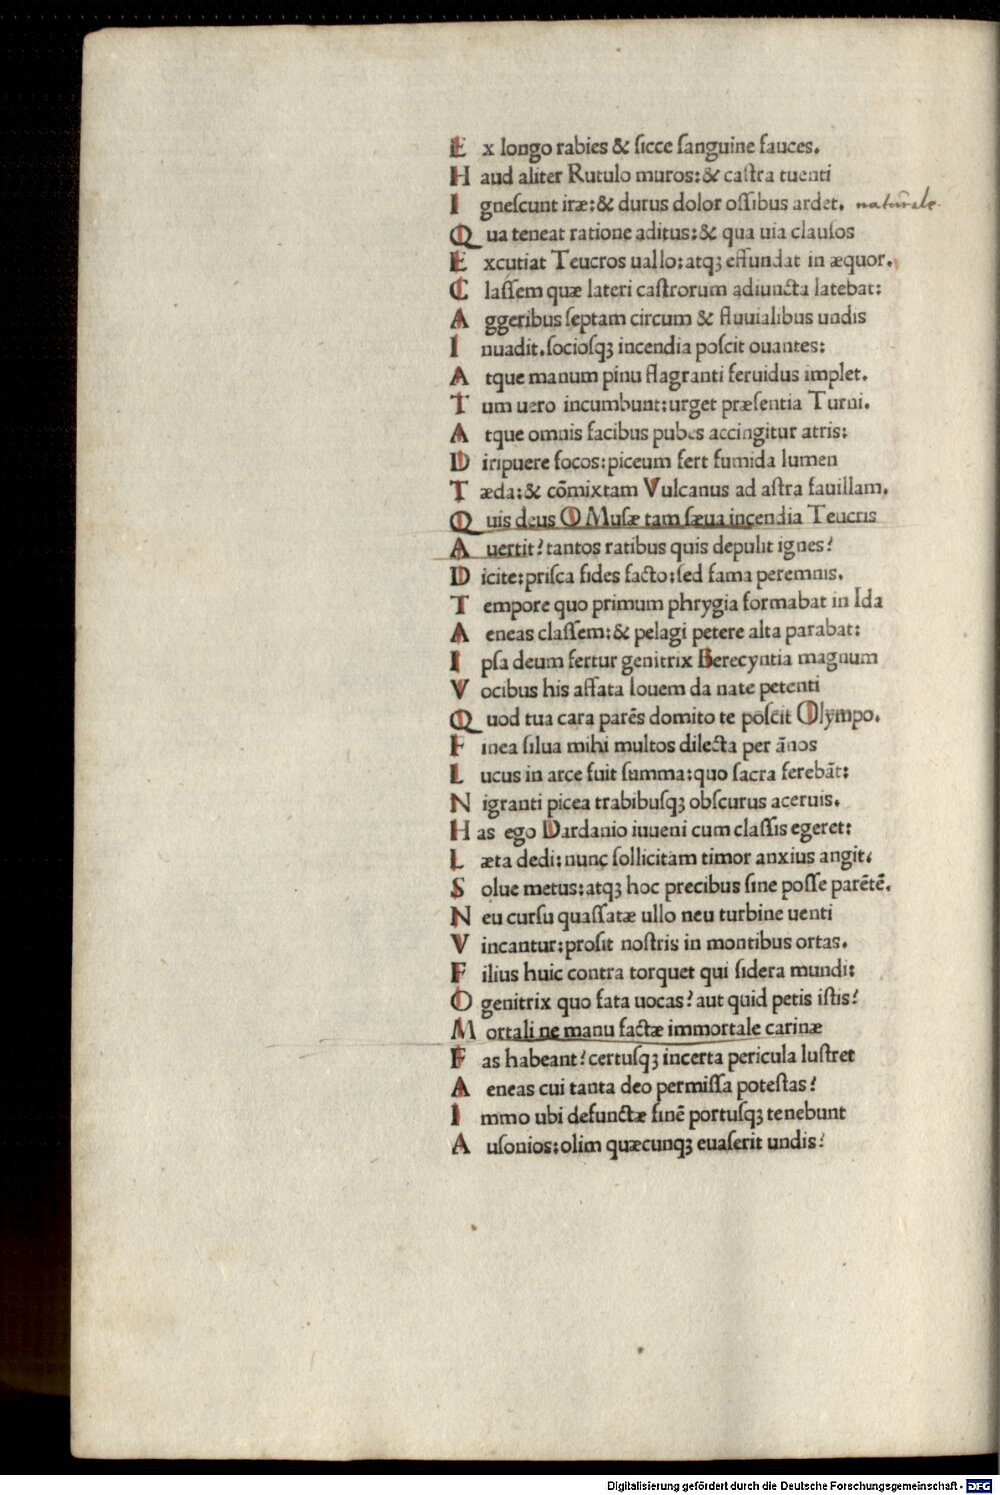 E x longo rabies & ſicce ſanguine fauces.
H aud aliter Rutulo muros:& caſtra tuenti
I gneſcunt iræ:& durus dolor oſſibus ardet. naturale.
Q ua teneat ratione aditus:& qua uia clauſos
E xcutiat Teucros uallo:atqꝫ effundat in æquor.
C laſſem quæ lateri caſtrorum adiuncta latebat:
A ggeribus ſeptam circum & fluuialibus undis
I nuadit.ſocioſqꝫ incendia poſcit ouantes:
A tque manum pinu flagranti feruidus implet.
T um uero incumbunt:urget præſentia Turni.
A tque omnis facibus pubes accingitur atris:
D iripuere focos:piceum fert fumida lumen
T æda:& cõmixtam Vulcanus ad aſtra fauillam.
Q uis deus O Muſæ tam ſæua incendia Teucris
A uertit?tantos ratibus quis depulit ignes?
D icite:priſca fides facto:ſed fama peremnis.
T empore quo primum phrygia formabat in Ida
A eneas claſſem:& pelagi petere alta parabat:
I pſa deum fertur genitrix Berecyntia magnum
V ocibus his affata Iouem da nate petenti
Q uod tua cara parẽs domito te poſcit Olympo.
F inea ſilua mihi multos dilecta per ãnos
L ucus in arce fuit ſumma:quo ſacra ferebãt:
N igranti picea trabibuſqꝫ obſcurus aceruis.
H as ego Dardanio iuueni cum claſſis egeret:
L æta dedi:nunc ſollicitam timor anxius angit.
S olue metus:atqꝫ hoc precibus ſine poſſe parẽtẽ.
N eu curſu quaſſatæ ullo neu turbine uenti
V incantur:proſit noſtris in montibus ortas.
F ilius huic contra torquet qui ſidera mundi:
O genitrix quo fata uocas?aut quid petis iſtis?
M ortali ne manu factæ immortale carinæ
F as habeant?certuſqꝫ incerta pericula luſtret
A eneas cui tanta deo permiſſa poteſtas?
I mmo ubi defunctæ finẽ portuſqꝫ tenebunt
A uſonios:olim quæcunqꝫ euaſerit undis?
Digitalisierung gefördert durch die Deutsche Forschungsgemeinschaft - DFG